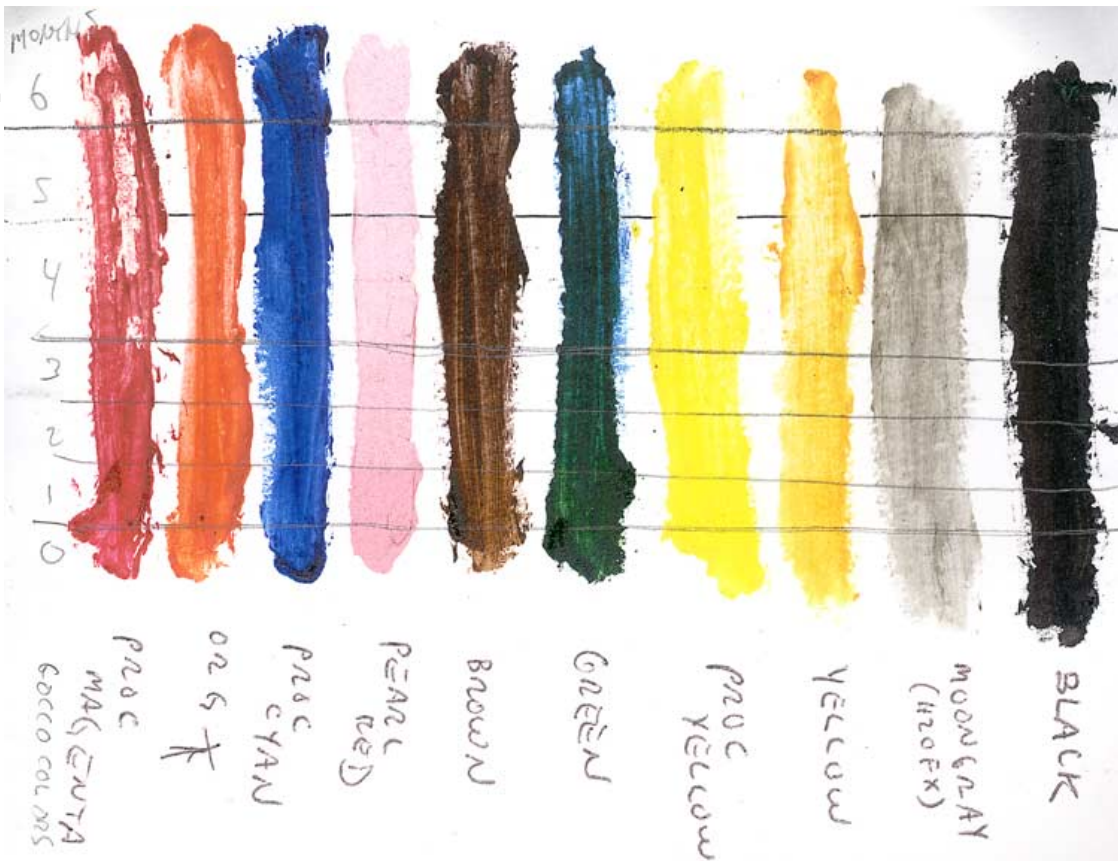 MONTHS
6
5
4
3
2
1
0
PROC
MAGENTA
GOCCO COLORS
ORG
PROC
CYAN
PEARL
RED
BROWN
GREEN
PROC
YELLOW
YELLOW
MOONGRAY
(H2OFX)
BLACK